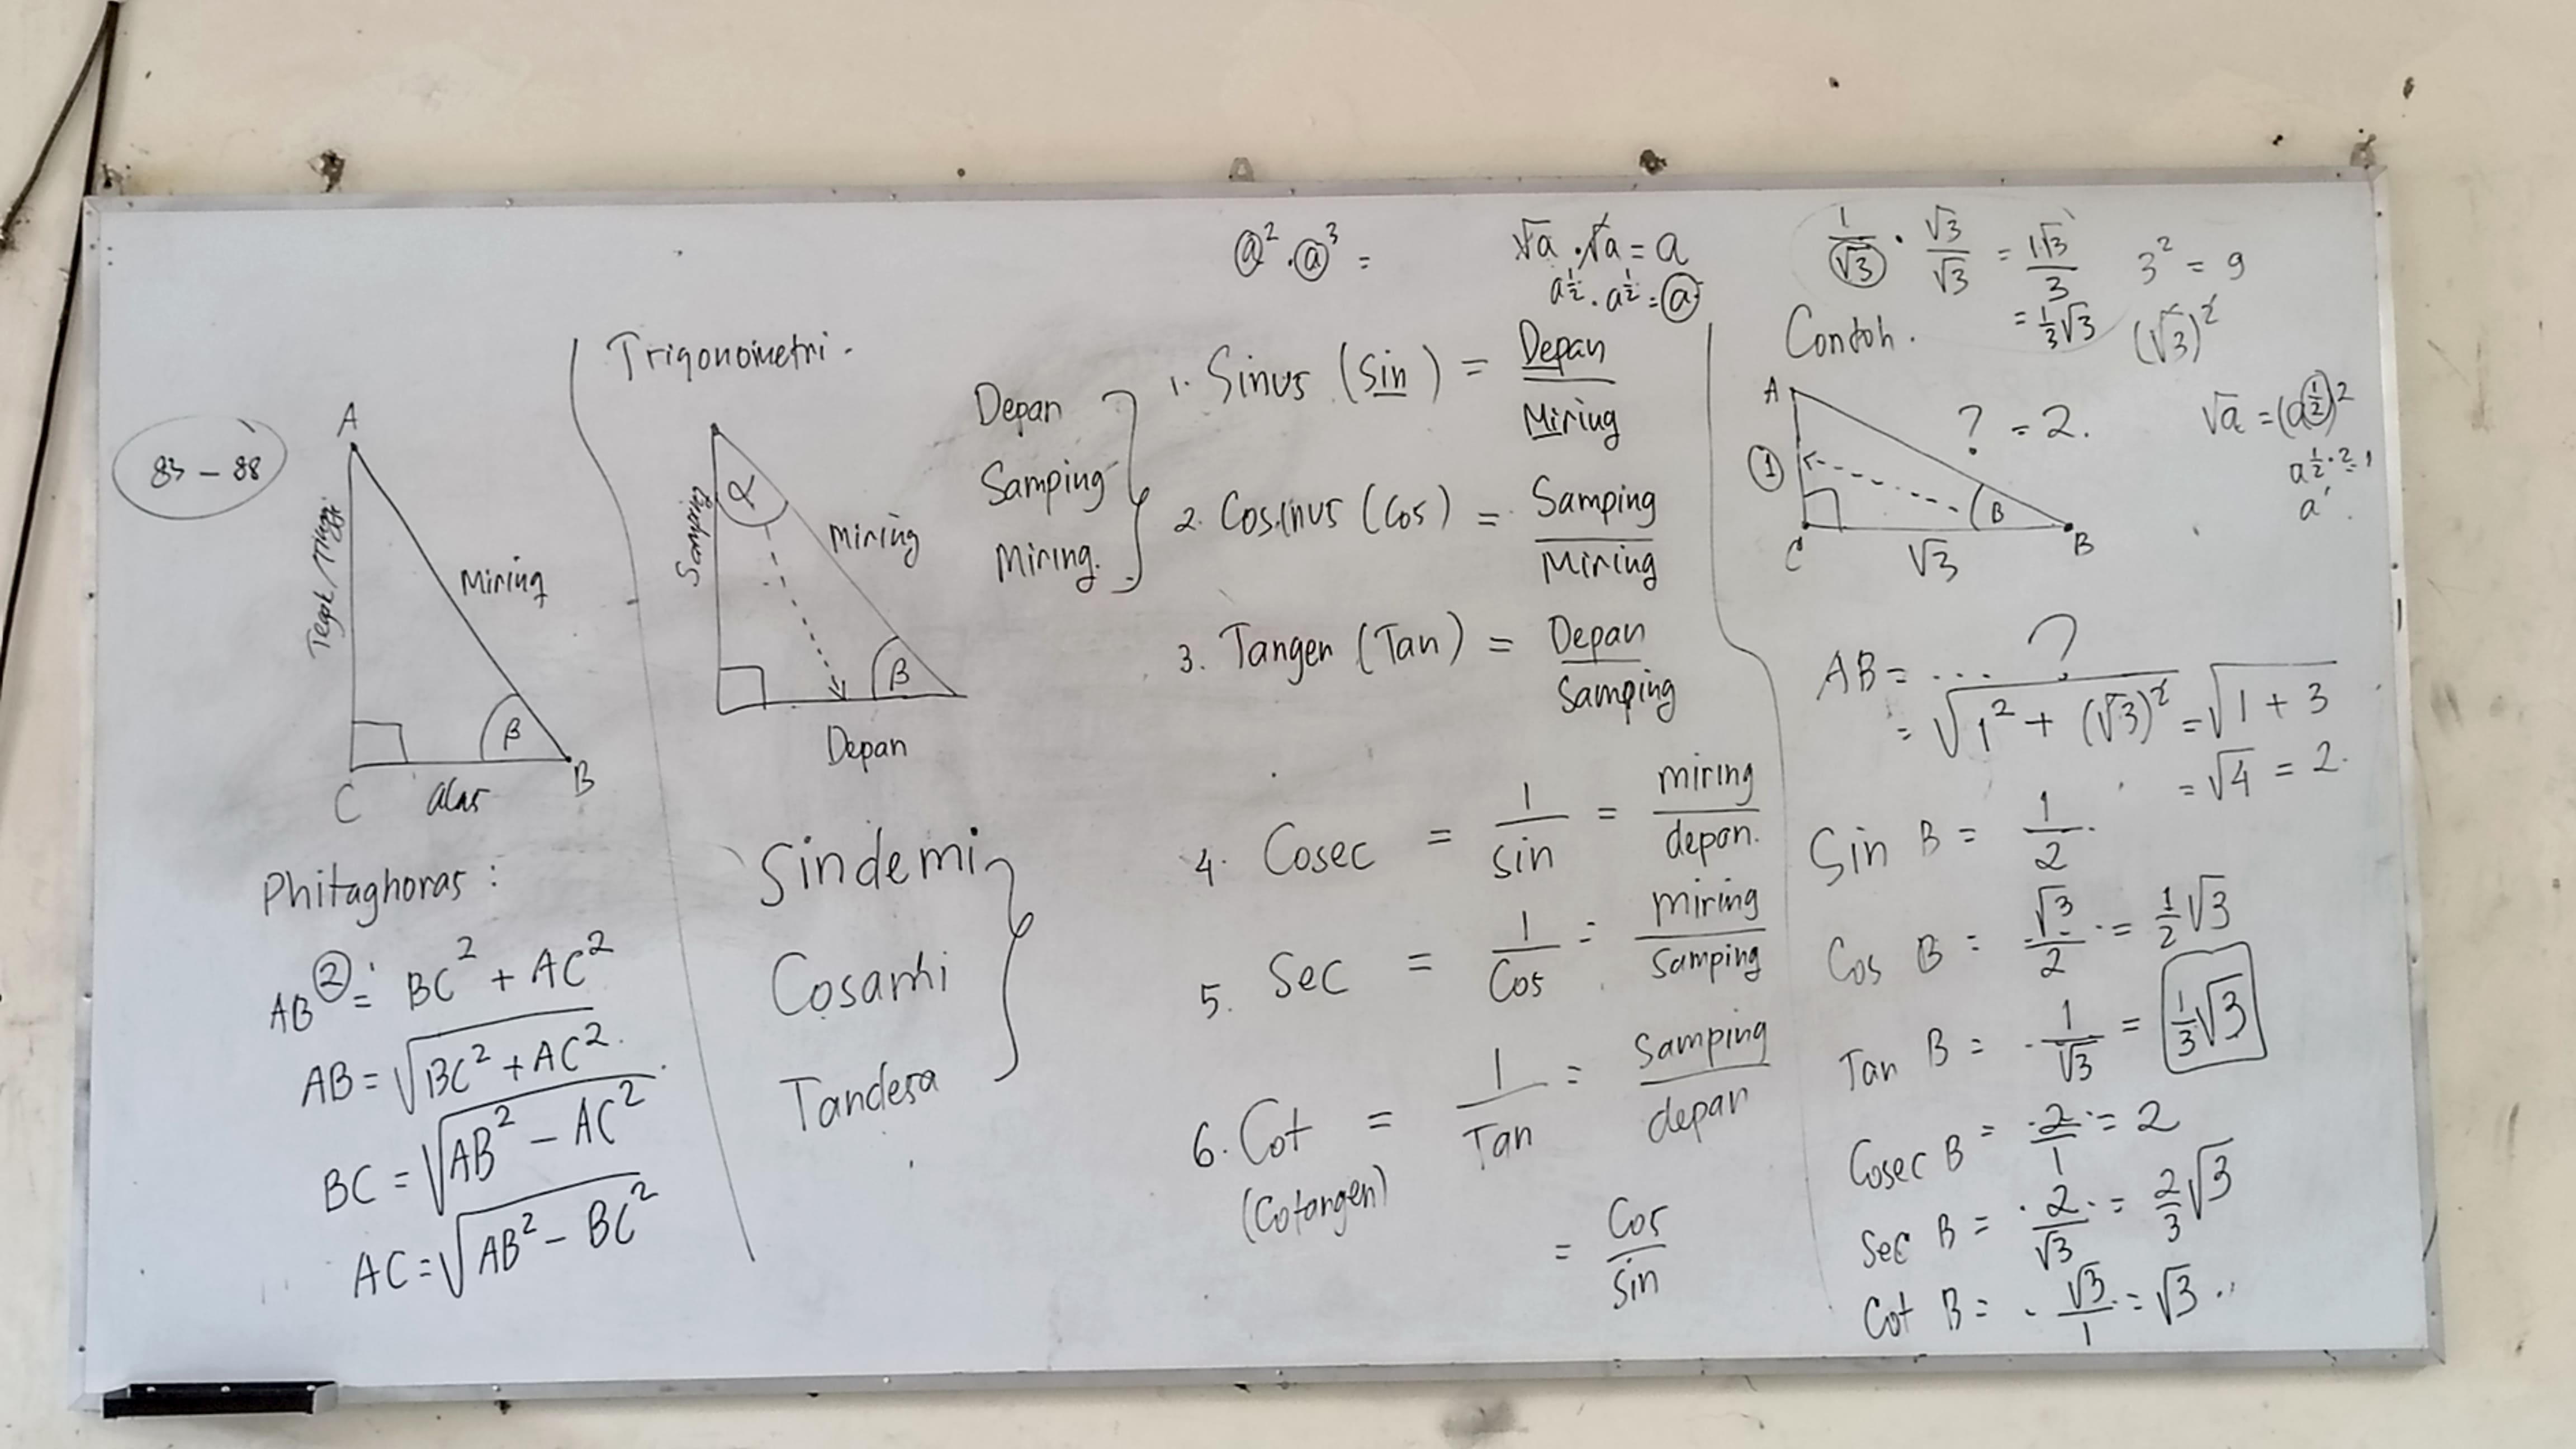 83 - 88
A
Miring
β
C
alas
B
Phitaghoras :
AB² = BC² + AC²
AB = √BC² + AC²
BC = √AB² - AC²
AC = √AB² - BC²
Trigonometri.
α
Samping
Miring
β
Depan
Depan
Samping
Miring.
Sindemi
Cosami
Tandesa
a² . a³ =
√a . √a = a
a½ . a½ = a
1. Sinus (Sin) = Depan / Miring
2. Cosinus (Cos) = Samping / Miring
3. Tangen (Tan) = Depan / Samping
4. Cosec = 1 / sin = miring / depan.
5. Sec = 1 / Cos = miring / Samping
6. Cot = 1 / Tan = Samping / depan
(Cotangen)
= Cos / Sin
1/√3 . √3/√3 = 1√3/3
= ⅓√3
3² = 9
(√3)²
Contoh.
A
? = 2.
1
B
C
√3
B
√a = (a½)²
a½·2=1
a¹
AB = .... ?
= √1² + (√3)² = √1 + 3
= √4 = 2.
Sin B = 1/2
Cos B = √3/2 = ½√3
Tan B = 1/√3 = ⅓√3
Cosec B = 2/1 = 2
Sec B = 2/√3 = ⅔√3
Cot B = √3/1 = √3